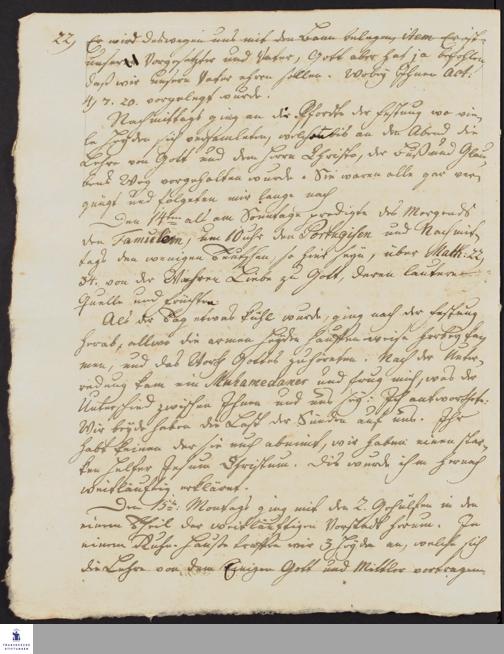 22) Er wird deswegen uns mit dem Bann belegen, item Er ist
unser Vorgesetzter und Vater, Gott aber hat ja befohlen,
daß wir unsern Vater ehren sollen. Wobey Ihnen Act.
4, 7. 20. vorgelegt wurde.
Nachmittags ging an die Pforte der Festung wo vie-
le Heyden sich versamleten, welchen bis an den Abend die
Lehre von Gott und dem Herrn Christo, der Buß und Glau-
bens Weg vorgehalten wurde. Sie waren alle gar ver-
gnügt und folgeten mir lange nach
Den 14ten als am Sonntage predigte des Morgends
den Famulem, um 10 Uhr den Portugisen und Nachmit-
tags den wenigen Teutschen, so hier seyn, über Math: 22,
34. von der Wahren Liebe zu Gott, deren lautere
Quelle und Früchte
Als der Tag etwas kühl wurde, ging nach der Festung
herab, allwo die armen Heyden hauffen weise herbey ka-
men, und das Wort Gottes zuhöreten. Nach der Unter-
redung kam ein Muhamedaner und frug mich, was der
Unterschied zwischen Ihnen und uns sey: Ich antwortete:
Wir beyde haben die Last der Sünden auf uns. Ihr
habt keinen der sie euch abnimt, wir haben einen star-
ken Helfer Jesum Christum. Dis wurde ihm hernach
weitläuftig erkläret.
Den 15t. Montags ging mit den 2. Gehülfen in den
einem Theil der weitläuftigen Vorstadt herum. In
einem Ruhe-Hause traffen wir 3 Heyden an, welche sich
die Lehre von dem Einigen Gott und Mittler vortragen
FRANCKESCHE
STIFTUNGEN